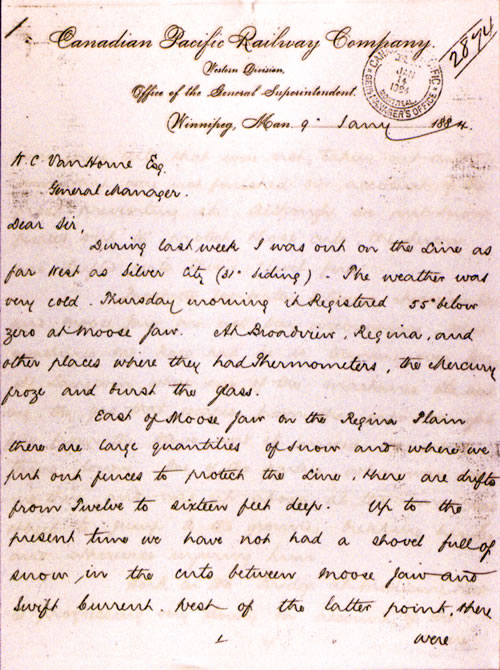 Canadian Pacific Railway Company.
2874
Western Division,
Office of the General Superintendent.
JAN
14
1884
MONTREAL
Winnipeg, Man. 9 Jany 1884.
W. C. Van Horne Esq.
General Manager.
Dear Sir,
During last week I was out on the Line as
far West as Silver City (31st Siding). The weather was
very cold. Thursday morning it Registered 55° below
zero at Moose Jaw. At Broadview, Regina, and
other places where they had Thermometers, the Mercury
froze and burst the glass.
East of Moose Jaw on the Regina Plain
there are large quantities of snow and where we
put out fences to protect the Line, there are drifts
from Twelve to sixteen feet deep. Up to the
present time we have not had a shovel full of
snow, in the cuts between Moose Jaw and
Swift Current. West of the latter point, there
were